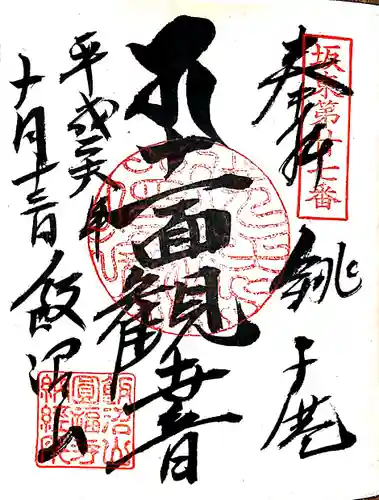 坂東第廿七番
奉拝
銚子港
十一面観世音
平成
十月十三日
飯沼山
飯沼山
圓福寺
納経印